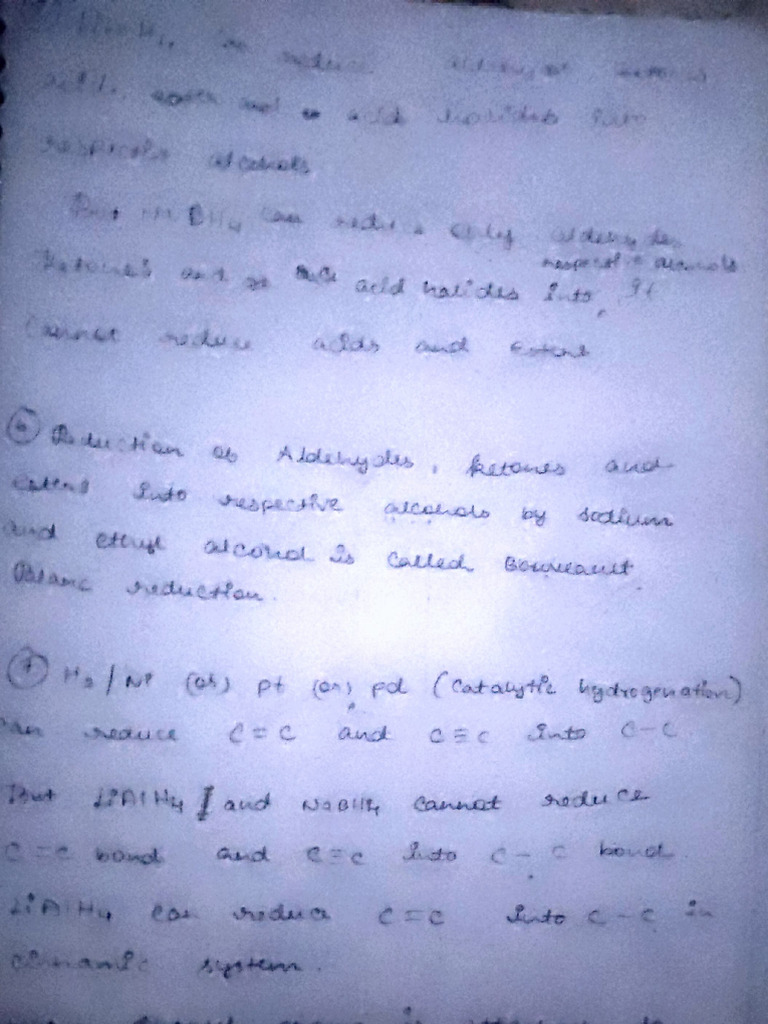 reduce
acid halides into
respective alcohols
But NaBH4 can reduce only aldehydes
respective alcohols
ketones and acid halides into, It
cannot reduce acids and esters
⑥ Reduction of Aldehydes, ketones and
esters into respective alcohols by sodium
and ethyl alcohol is called Bouveault
Blanc reduction.
⑦ H2/Ni (or) pt (or) pd (Catalytic hydrogenation)
can reduce C=C and C≡C into C-C
But LiAlH4 and NaBH4 cannot reduce
C=C bond and C≡C into C-C bond.
LiAlH4 can reduce C=C into C-C in
cinnamic system.